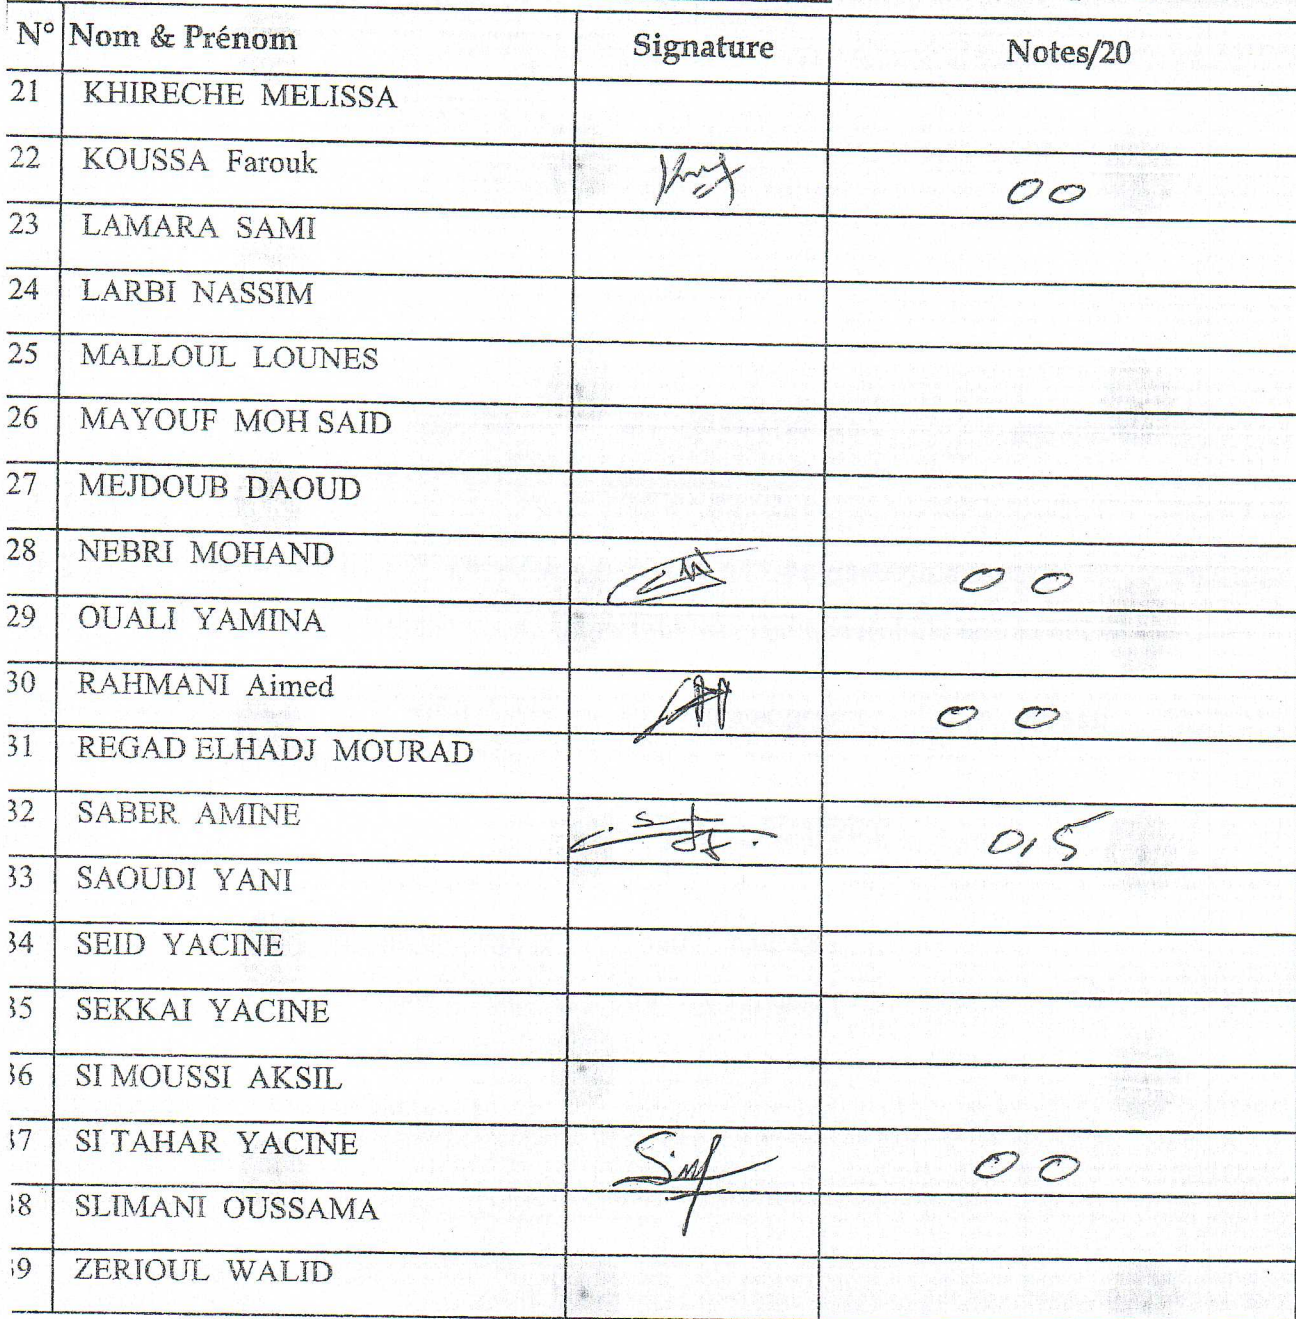 N° Nom & Prénom Signature Notes/20
21 KHIRECHE MELISSA
22 KOUSSA Farouk 00
23 LAMARA SAMI
24 LARBI NASSIM
25 MALLOUL LOUNES
26 MAYOUF MOH SAID
27 MEJDOUB DAOUD
28 NEBRI MOHAND 00
29 OUALI YAMINA
30 RAHMANI Aimed 00
31 REGAD ELHADJ MOURAD
32 SABER AMINE 0,5
33 SAOUDI YANI
34 SEID YACINE
35 SEKKAI YACINE
36 SI MOUSSI AKSIL
37 SI TAHAR YACINE 00
38 SLIMANI OUSSAMA
39 ZERIOUL WALID